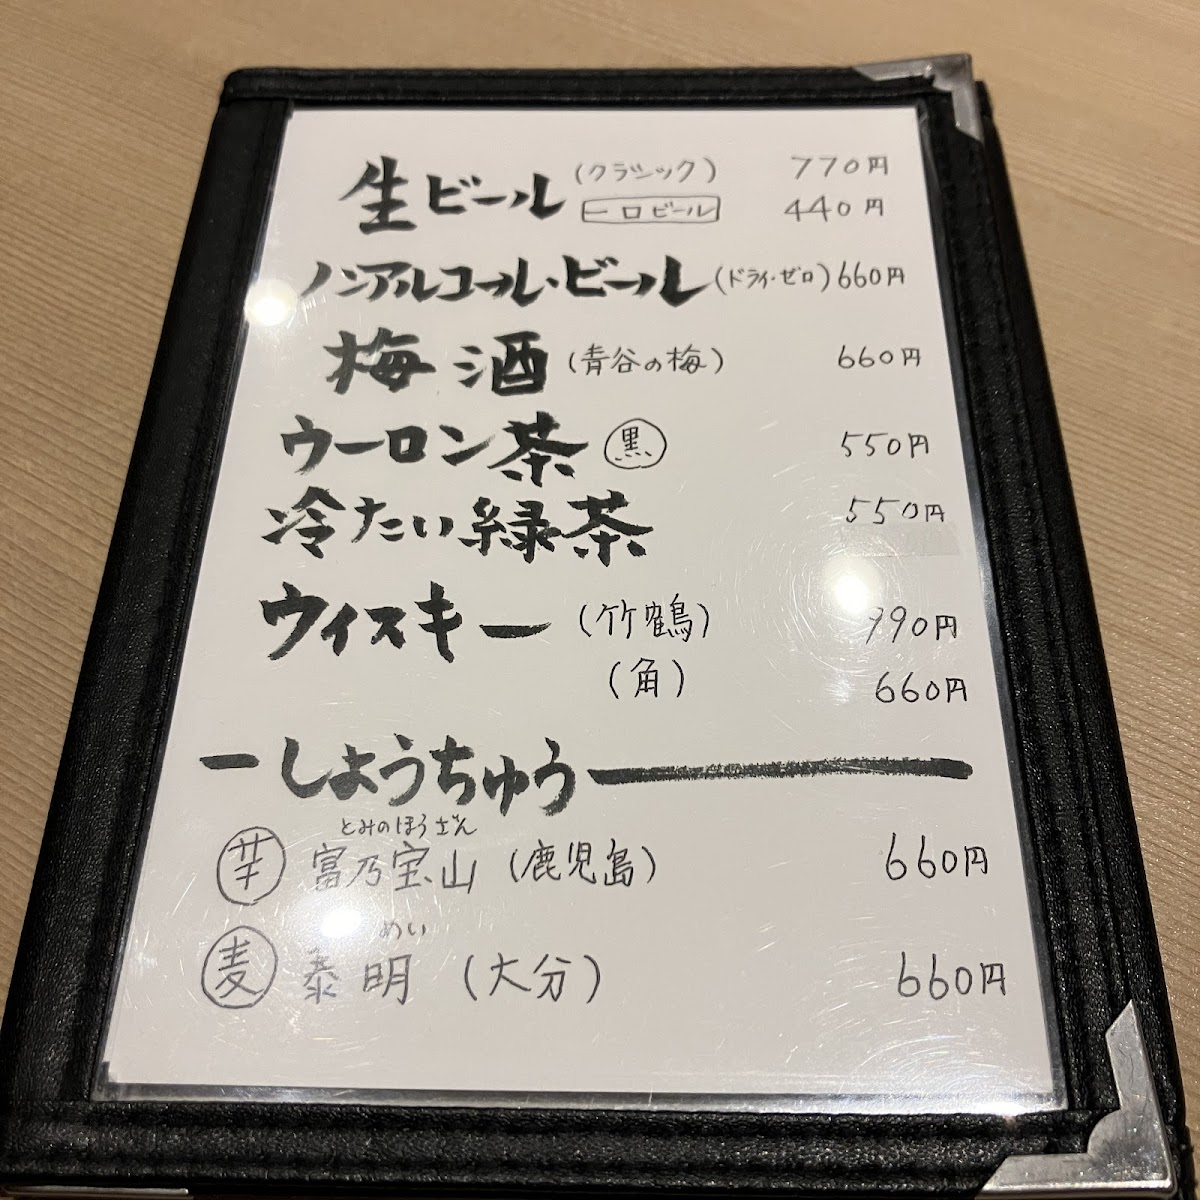 生ビール (クラシック) 770円
一口ビール 440円
ノンアルコール・ビール (ドライ・ゼロ) 660円
梅酒 (青谷の梅) 660円
ウーロン茶 黒 550円
冷たい緑茶 550円
ウィスキー (竹鶴) 990円
(角) 660円
ーしょうちゅうー
とみのほうざん
芋 富乃宝山 (鹿児島) 660円
めい
麦 泰明 (大分) 660円